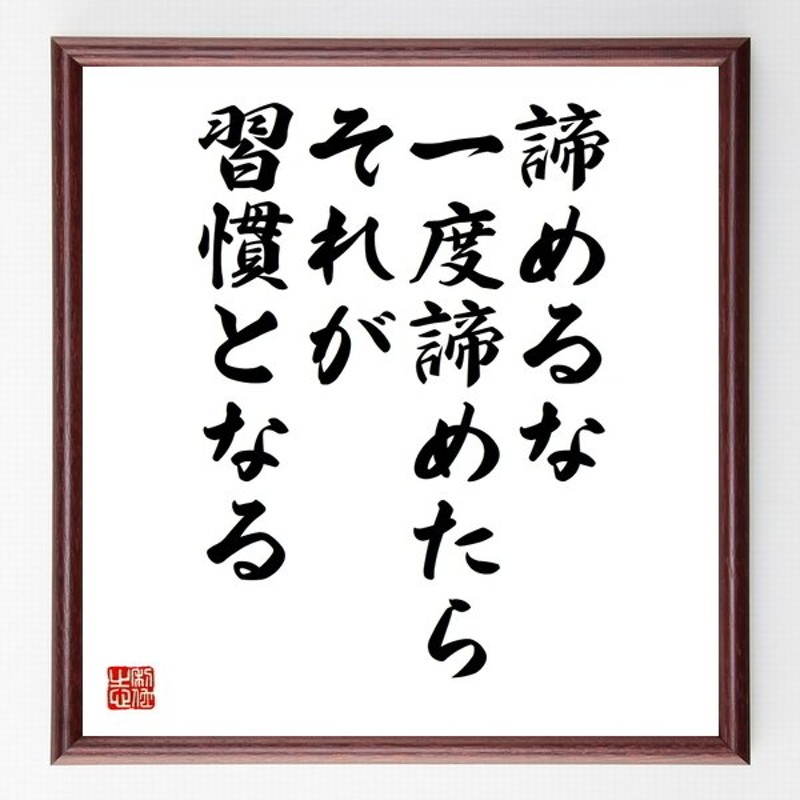 諦めるな
一度諦めたら
それが
習慣となる